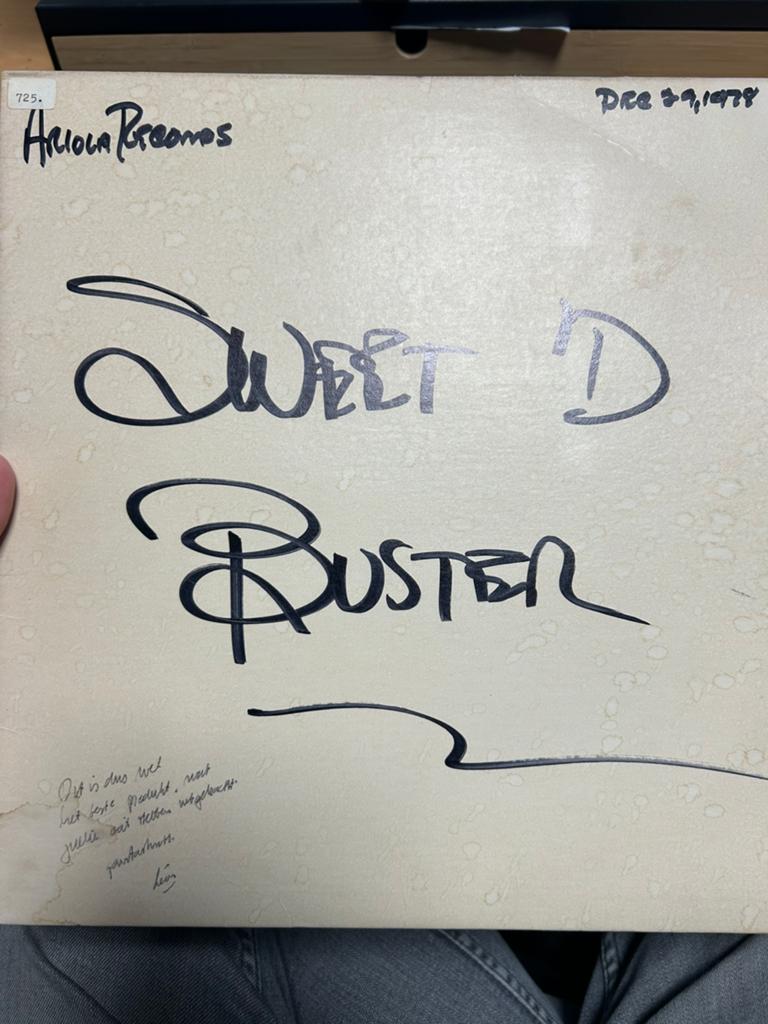 725.
Ariola Records
Dec 29, 1978
SWEET D
BUSTER
Dit is dus wel
het beste produkt. wat
jullie ooit hebben uitgebracht.
fantastisch.
Léon